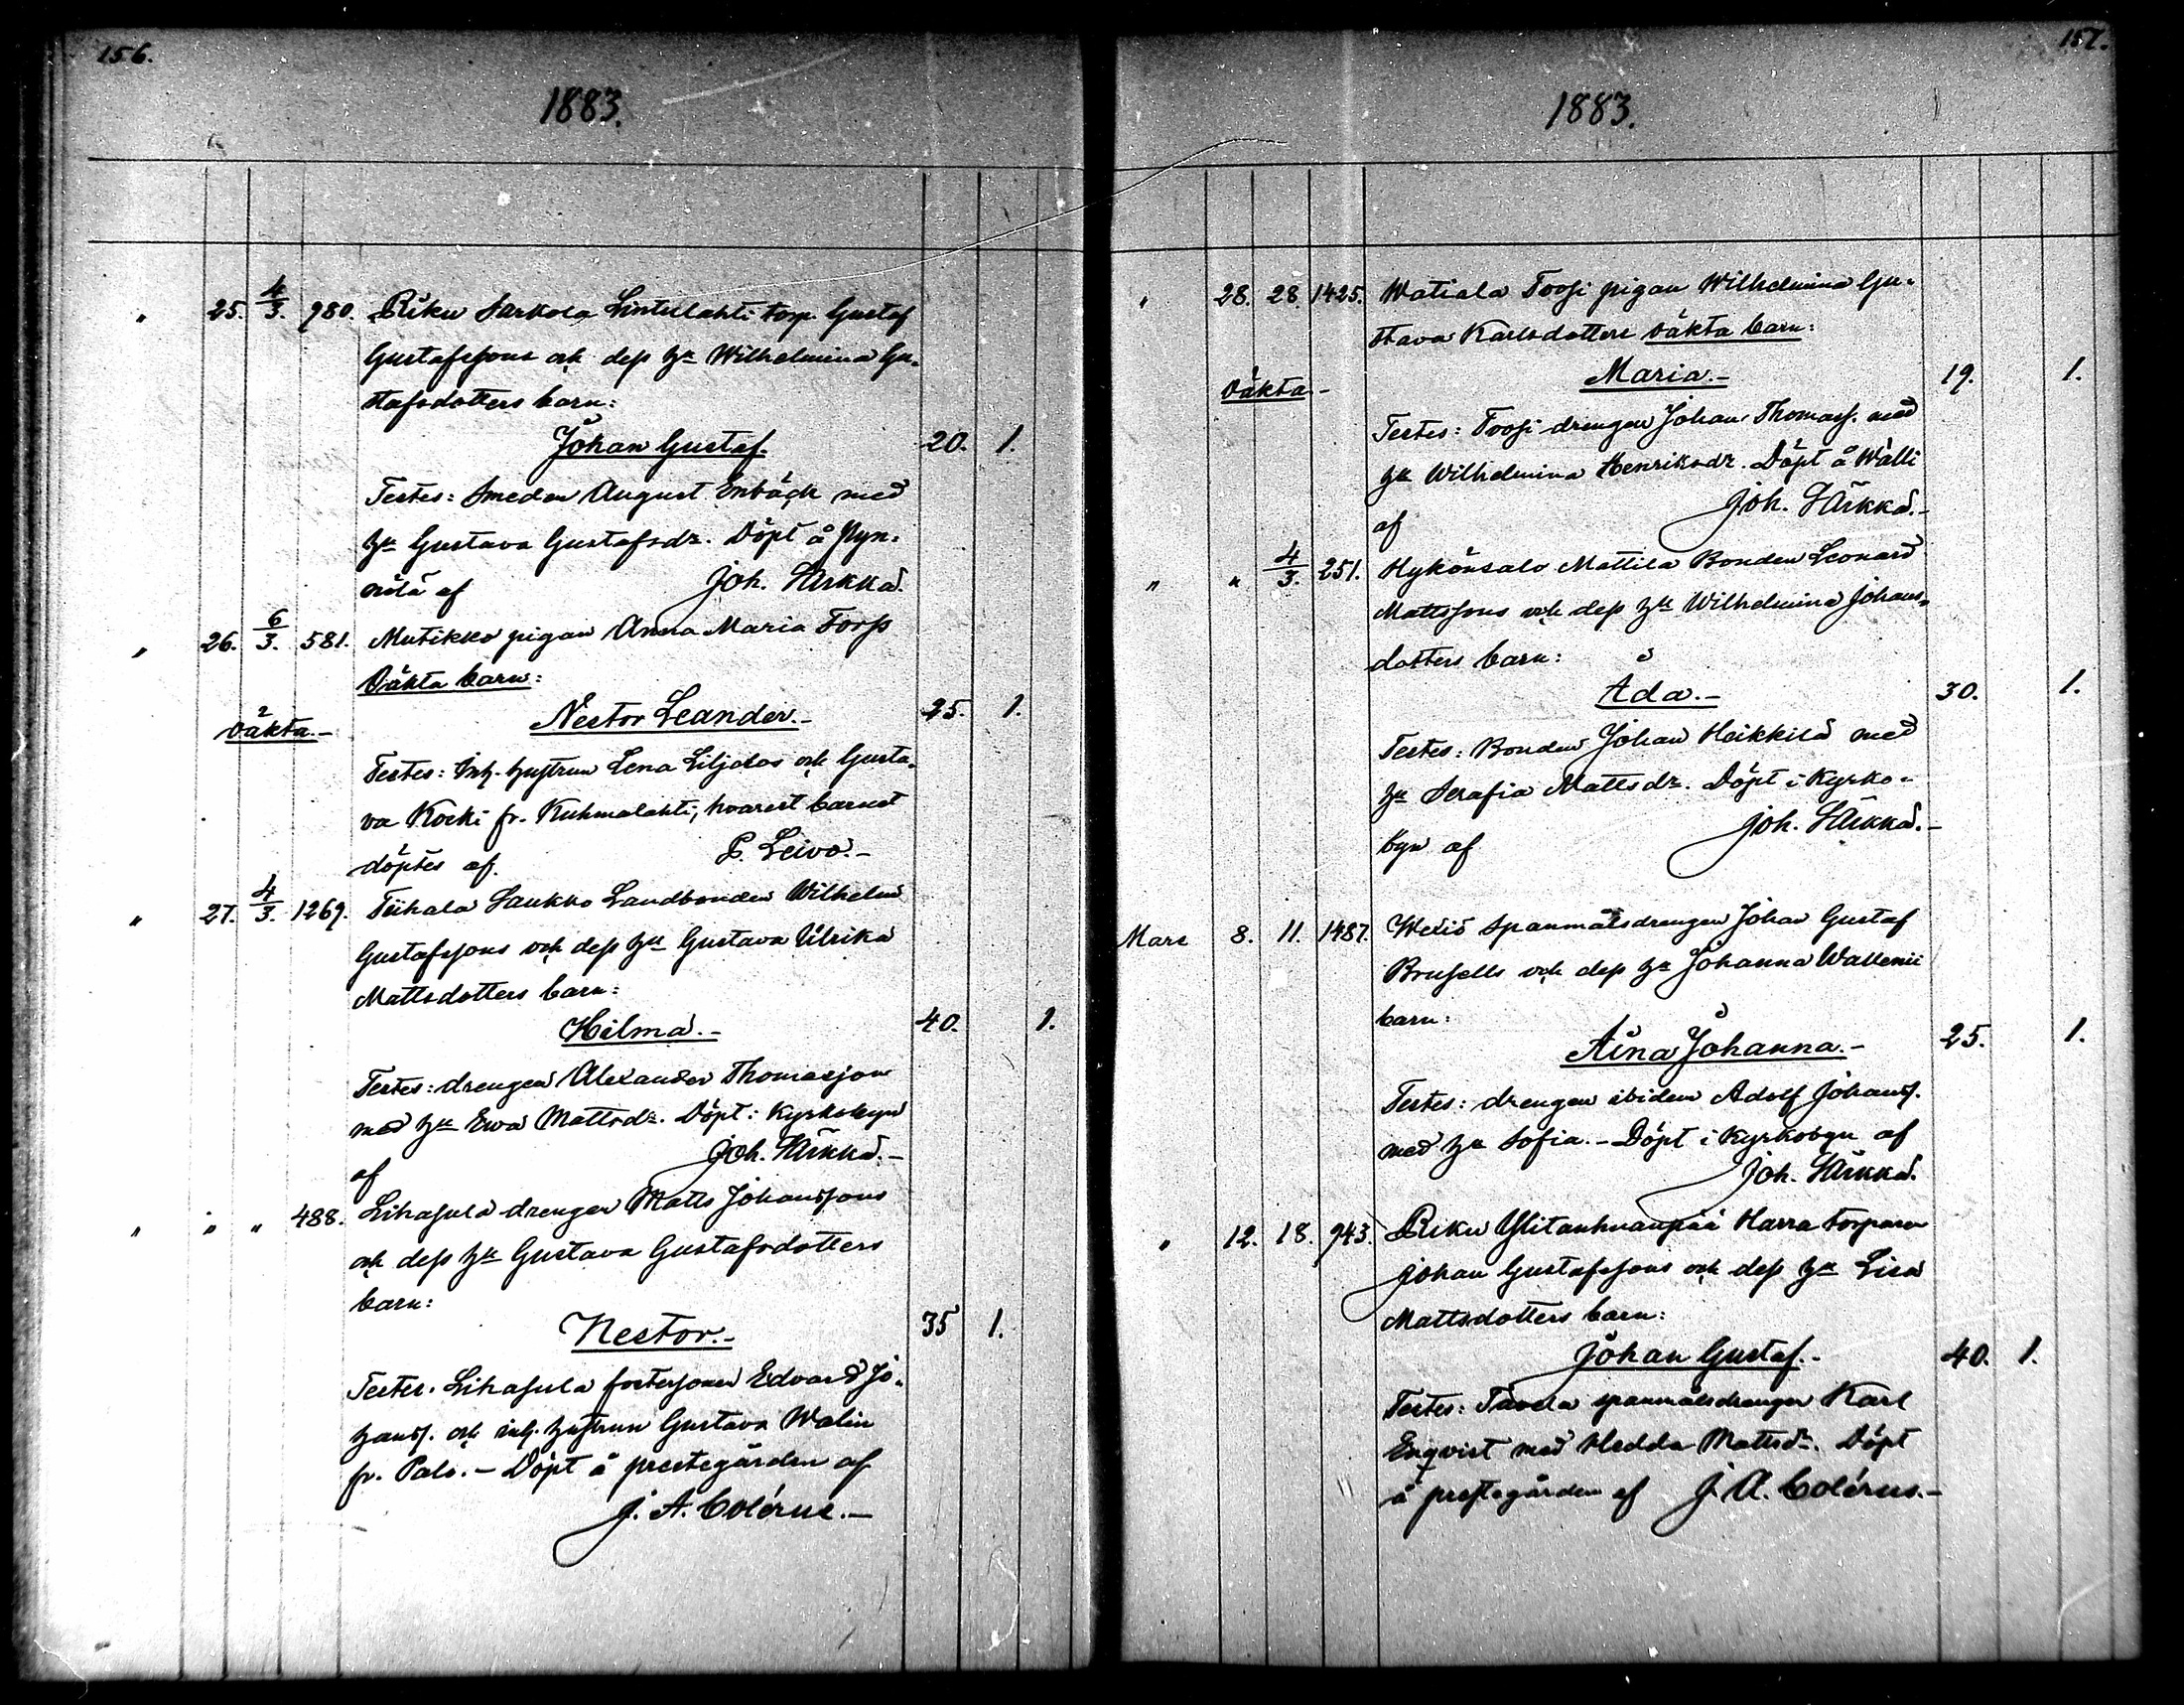 156.
1883.
" 25. 4/3. 980. Riku Sarkola Lintulahti torp. Gustaf
Gustafssons och dess hu Wilhelmina Gu-
stafsdotters barn:
Johan Gustaf. 20. 1.
Testes: Smeden August Enbäck med
hu Gustava Gustafsdr. Döpt å Pyn-
nölä af Joh. Särkkä.
" 26. 6/3. 581. Mutikko pigan Anna Maria Forss
Oäkta barn:
oäkta.- Nestor Leander.- 25. 1.
Testes: Inh. hustrun Lena Liljalas och Gusta-
va Kocki fr. Kuhmalahti, hvarest barnet
döptes af. P. Leivo.-
" 27. 4/3. 1269. Tiihala Saukko Landbonden Wilhelm
Gustafssons och dess hu Gustava Ulrika
Mattsdotters barn:
Hilma.- 40. 1.
Testes: drengen Alexander Thomasson
med hu Ewa Mattsdr. Döpt i Kyrkobyn
af Joh. Särkkä.-
" " " 488. Lihasula drengen Matts Johanssons
och dess hu Gustava Gustafsdotters
barn:
Nestor.- 35 1.
Testes. Lihasula fostersonen Edvard Jo-
hanss. och inh. hustrun Gustava Walin
fr. Palo.- Döpt å prestegården af
J. A. Colérus.-
157.
1883.
" 28. 28. 1425. Watiala Toosi pigan Wilhelmina Gu-
stava Karlsdotters oäkta barn:
oäkta- Maria.- 19. 1.
Testes: Toosi drengen Johan Thomass. med
hu Wilhelmina Henriksdr. Döpt å Wälli
af Joh. Särkkä.-
" " 4/3. 251. Hykönsalo Mattila Bonden Leonard
Mattssons och dess hu Wilhelmina Johans-
dotters barn:
Ada.- 30. 1.
Testes: Bonden Johan Heikkilä med
hu Serafia Mattsdr. Döpt i Kyrko-
byn af Joh. Särkkä.-
Mars 8. 11. 1487. Weliö Spanmålsdrengen Johan Gustaf
Brusells och dess hu Johanna Wallenii
barn:
Aina Johanna.- 25. 1.
Testes: drengen ibidem Adolf Johanss.
med hu Sofia.- Döpt i Kyrkobyn af
Joh. Särkkä.
" 12. 18. 943. Riku Ylitanhuanpää Harra torparen
Johan Gustafssons och dess hu Lisa
Mattsdotters barn:
Johan Gustaf.- 40. 1.
Testes: Tavela spanmålsdrengen Karl
Enqvist med Hedda Mattsdr. Döpt
å prestegården af J. A. Colérus.-